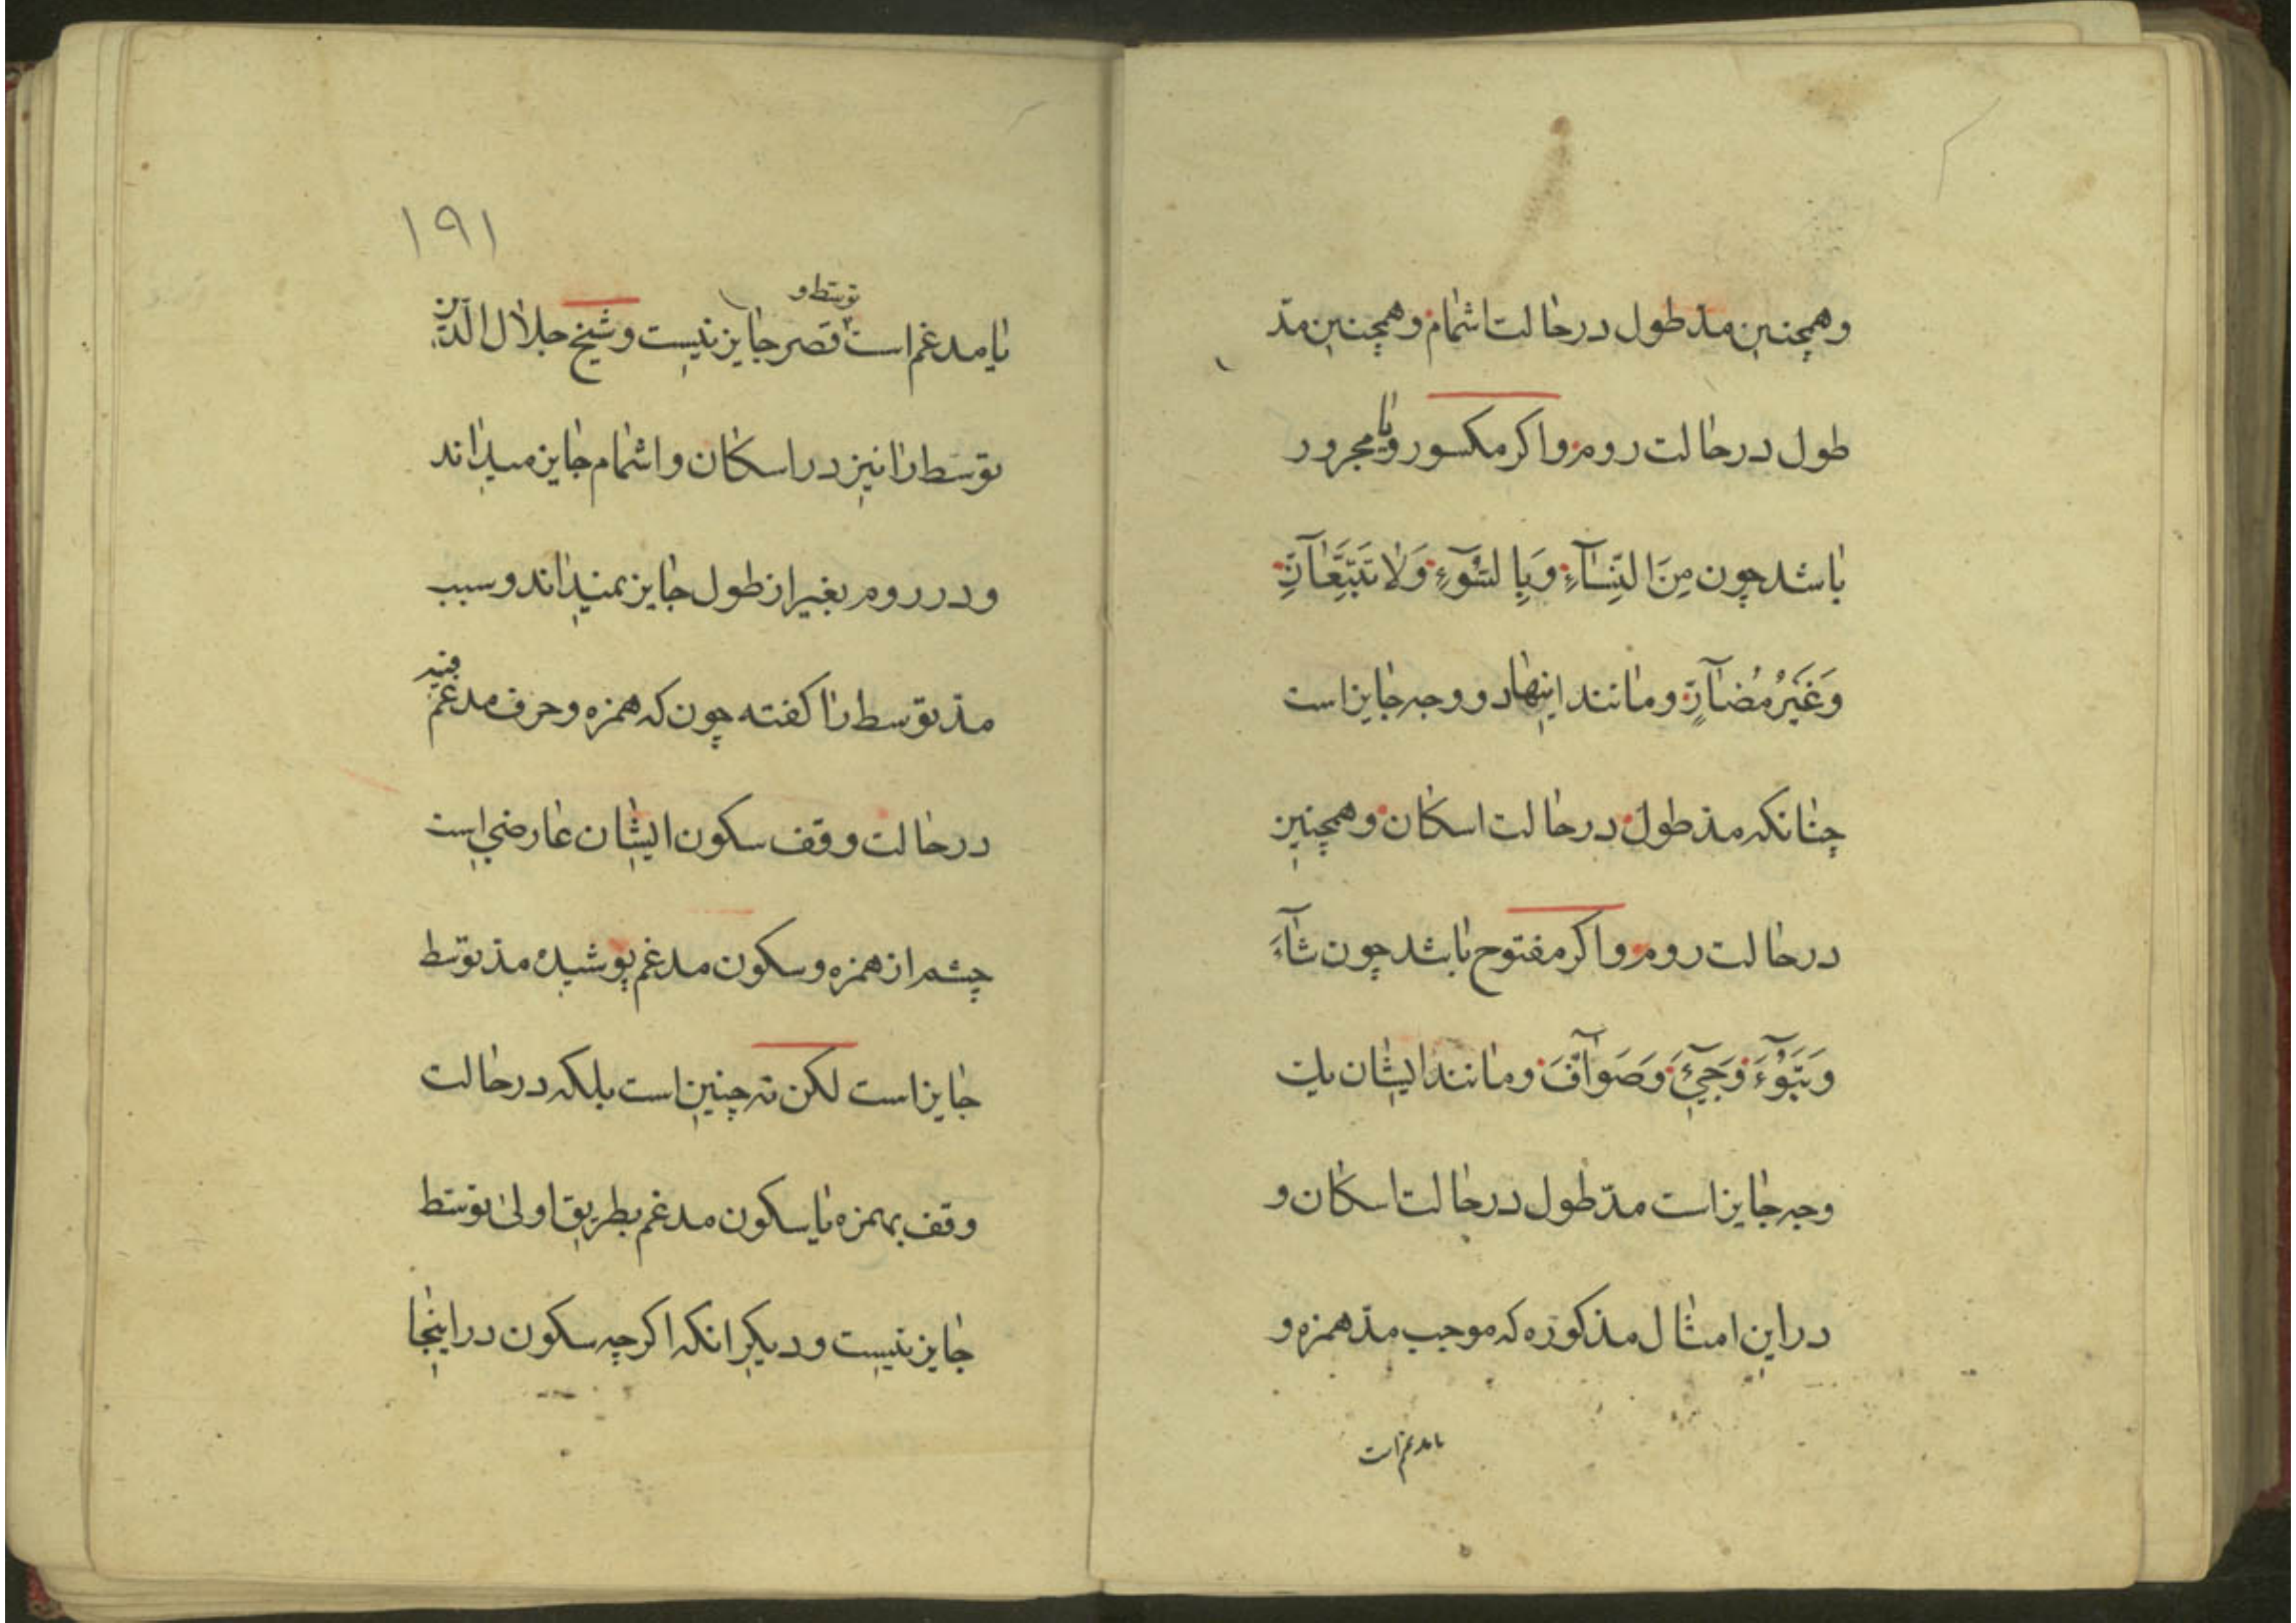 وهمچنین مدّ طول در حالت اشمام و همچنین مدّ
طول در حالت روم و اکر مکسور و یا مجرور
باشد چون مِنَ النِّسَآءِ وَ بِالسُّوٓءِ وَلَا تَتَّبِعَآنِّ
وَغَیْرُ مُضَآرٍّ و مانند اینها دو وجه جایز است
چنانکه مدّ طول در حالت اسکان و همچنین
در حالت روم و اکر مفتوح باشد چون شَآءَ
وَ تَبَوَّءَ وَجِیٓءَ وَصَوَآفَّ و مانند ایشان یک
وجه جایز است مدّ طول در حالت اسکان و
در این امثال مذکوره که موجب مدّ همزه و
یا مدغم است
۱۹۱
یا مدغم است توسّط و قصر جایز نیست و شیخ جلال الدّین
توسّط را نیز در اسکان و اشمام جایز میداند
و در روم بغیر از طول جایز نمیداند و سبب
مدّ توسّط را کفته چون که همزه و حرف مدغم فیه
در حالت وقف سکون ایشان عارضی است
چشم از همزه و سکون مدغم پوشیده مدّ توسّط
جایز است لکن نه چنین است بلکه در حالت
وقف بهمزه یا سکون مدغم بطریق اولی توسّط
جایز نیست و دیکر انکه اکرچه سکون در اینجا